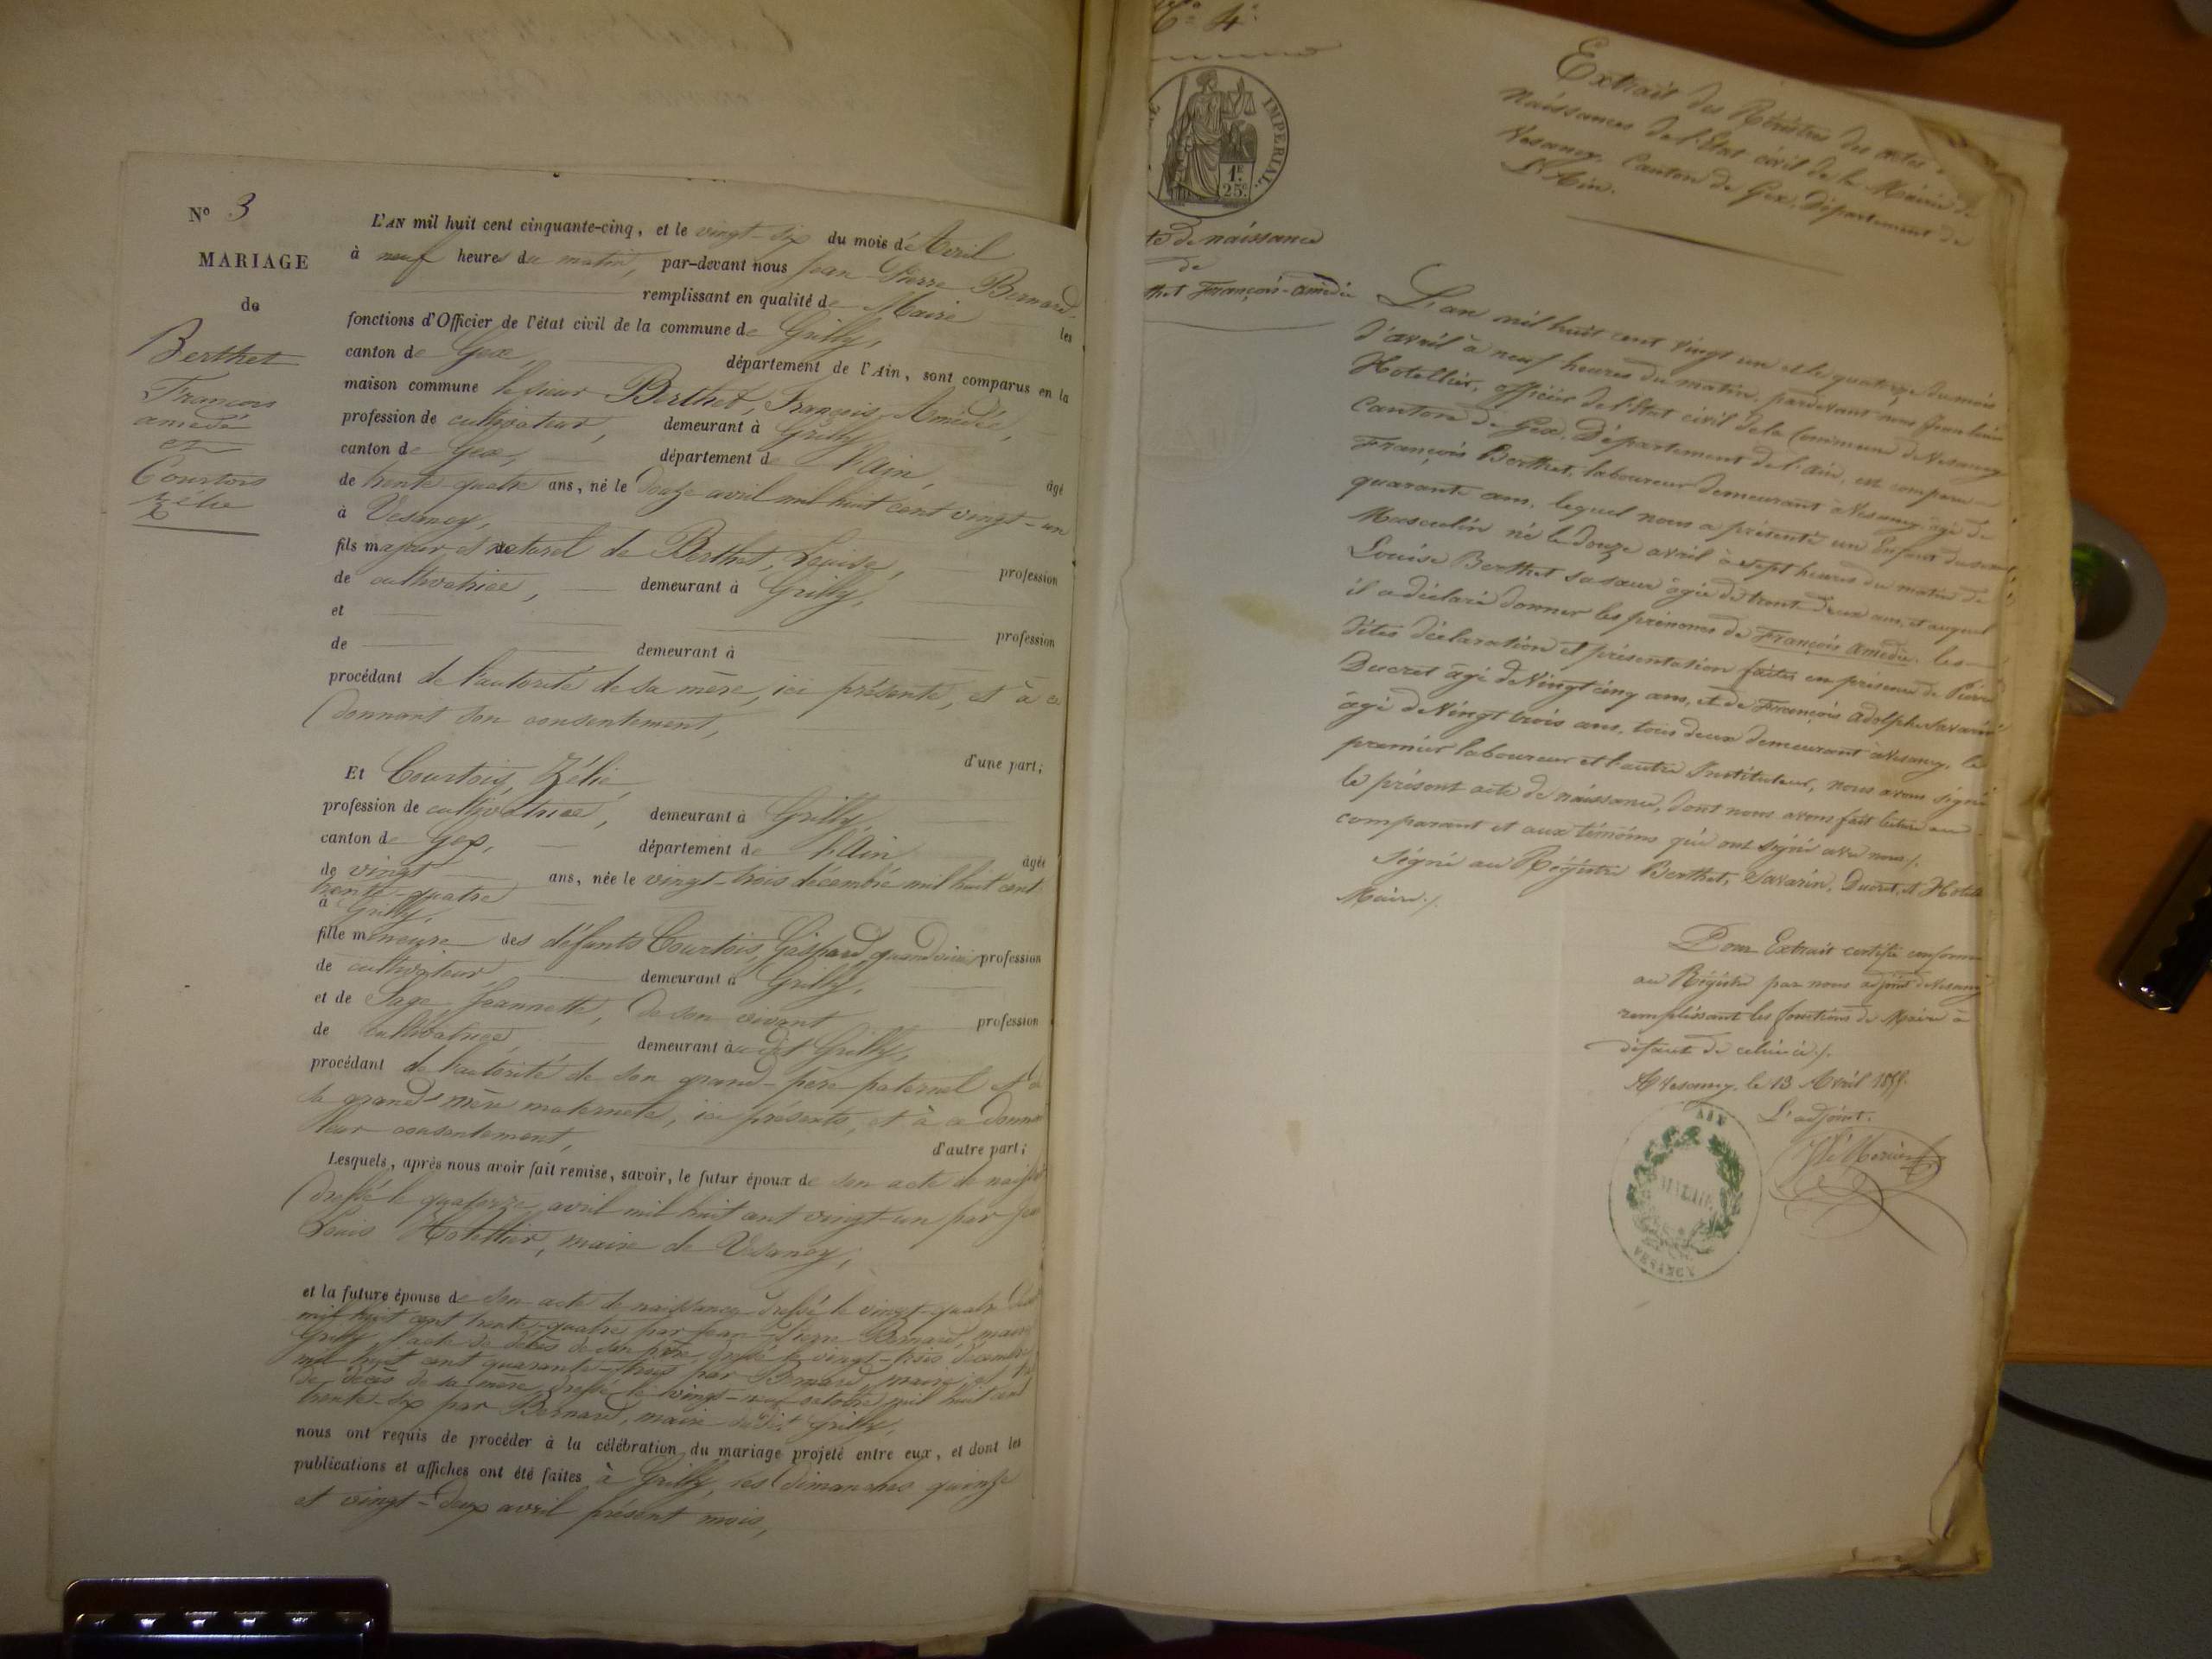 N° 3
MARIAGE
de
Berthet
François
amédé
et
Courtois
Zélie
L'AN mil huit cent cinquante-cinq, et le vingt-six du mois d'Avril
à neuf heures du matin, par-devant nous Jean Pierre Bernard,
remplissant en qualité de Maire les
fonctions d'Officier de l'état civil de la commune de Grilly,
canton de Gex, département de l'Ain, sont comparus en la
maison commune le sieur Berthet, François Amédée,
profession de cultivateur, demeurant à Grilly,
canton de Gex, département de l'Ain, âgé
de trente-quatre ans, né le douze avril mil huit cent vingt-un
à Vesancy,
fils majeur et naturel de Berthet, Louise, profession
de cultivatrice, demeurant à Grilly,
et profession
de demeurant à
procédant de l'autorité de sa mère, ici présente, et à ce
donnant son consentement,
d'une part;
Et Courtois, Zélie,
profession de cultivatrice, demeurant à Grilly,
canton de Gex, département de l'Ain, âgée
de vingt ans, née le vingt-trois décembre mil huit cent
trente-quatre
à Grilly,
fille mineure des défunts Courtois, Gaspard, quand vivait profession
de cultivateur demeurant à Grilly,
et de Sage, Jeannette, de son vivant profession
de cultivatrice, demeurant à dit Grilly,
procédant de l'autorité de son grand-père paternel et de
sa grand'mère maternelle, ici présents, et à ce donnant
leur consentement,
d'autre part;
Lesquels, après nous avoir fait remise, savoir, le futur époux de son acte de naissance
dressé le quatorze avril mil huit cent vingt-un par Jean
Louis Hotellier, maire de Vesancy;
et la future épouse de son acte de naissance dressé le vingt-quatre
mil huit cent trente-quatre par Jean-Pierre Bernard, maire
Grilly, l'acte de décès de son père dressé le vingt-trois décembre
mil huit cent quarante-trois par Bernard, maire, et
de décès de sa mère, dressé le vingt-neuf octobre mil huit cent
trente-six par Bernard, maire dudit Grilly,
nous ont requis de procéder à la célébration du mariage projeté entre eux, et dont les
publications et affiches ont été faites à Grilly, les dimanches quinze
et vingt-deux avril présent mois,
N° 4
IMPERIAL
1F.
25c.
te de naissance
de
thet François-amédée
Extrait des Régistres des actes de
naissances de l'Etat civil de la Mairie de
Vesancy, Canton de Gex, Département de
L'Ain.
L'an mil huit cent vingt un et le quatorze du mois
d'avril à neuf heures du matin, pardevant nous Jean Louis
Hotellier, officier de l'Etat civil de la Commune de Vesancy
Canton de Gex, Département de l'Ain, est comparu
François Berthet, laboureur demeurant à Vesancy, âgé de
quarante ans, lequel nous a présenté un Enfant du sexe
Masculin né le douze avril à sept heures du matin de
Louise Berthet sa sœur âgée de trente deux ans, et auquel
il a déclaré donner les prénoms de François Amédée, les
dites déclaration et présentation faites en présence de Pierre
Ducret âgé de Vingt cinq ans, et de François Adolphe Savarin
âgé de Vingt trois ans, tous deux demeurant à Vesancy, le
premier laboureur et l'autre Instituteur, nous avons signé
le présent acte de naissance, dont nous avons fait lecture au
comparant et aux témoins qui ont signé avec nous./.
Signé au Régistre Berthet, Savarin, Ducret, et Hotellier
Maire./.
Pour Extrait certifié conforme
au Régistre par nous adjoint de Vesancy
remplissant les fonctions de Maire à
défaut de celui-ci./.
A Vesancy, le 13 Avril 1855.
L'adjoint.
AIN
MAIRIE
VESANCY